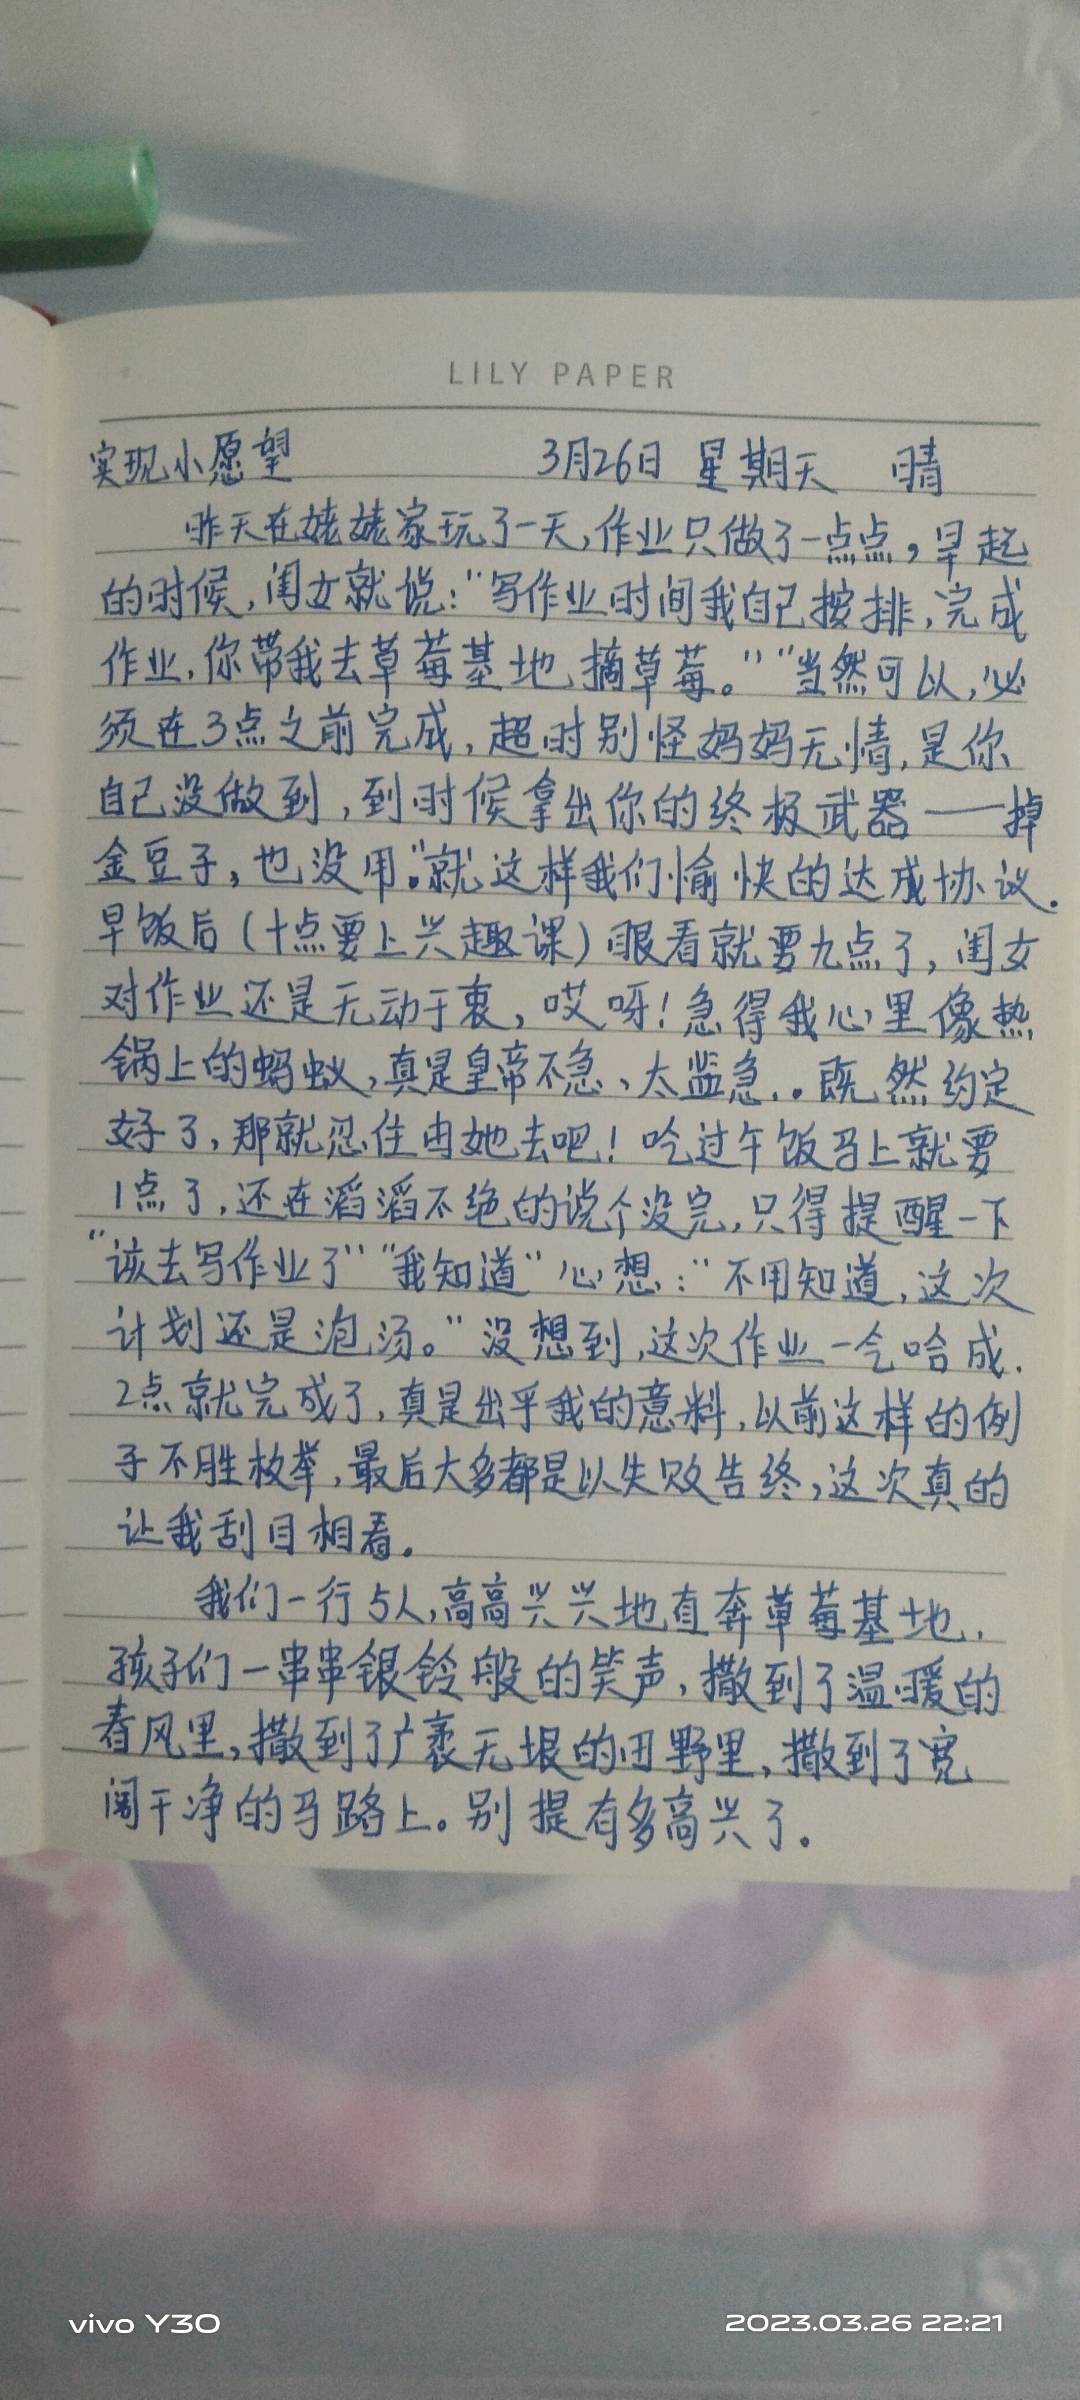 LILY PAPER
实现小愿望 3月26日 星期天 晴
昨天在姥姥家玩了一天,作业只做了一点点,早起
的时候,闺女就说:"写作业时间我自己按排,完成
作业,你带我去草莓基地摘草莓。""当然可以,必
须在3点之前完成,超时别怪妈妈无情,是你
自己没做到,到时候拿出你的终极武器——掉
金豆子,也没用。"就这样我们愉快的达成协议.
早饭后(十点要上兴趣课)眼看就要九点了,闺女
对作业还是无动于衷,哎呀!急得我心里像热
锅上的蚂蚁,真是皇帝不急、太监急..既然约定
好了,那就忍住由她去吧!吃过午饭马上就要
1点了,还在滔滔不绝的说个没完,只得提醒一下
"该去写作业了""我知道"心想:"不用知道,这次
计划还是泡汤。"没想到,这次作业一气哈成.
2点就完成了,真是出乎我的意料,以前这样的例
子不胜枚举,最后大多都是以失败告终,这次真的
让我刮目相看.
我们一行5人,高高兴兴地直奔草莓基地.
孩子们一串串银铃般的笑声,撒到了温暖的
春风里,撒到了广袤无垠的田野里,撒到了宽
阔干净的马路上。别提有多高兴了.
vivo Y30
2023.03.26 22:21